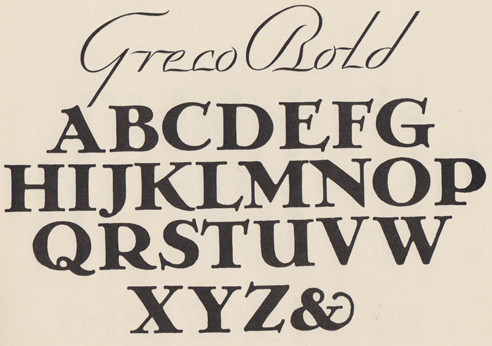 Greco Bold
ABCDEFG
HIJKLMNOP
QRSTUVW
XYZ&